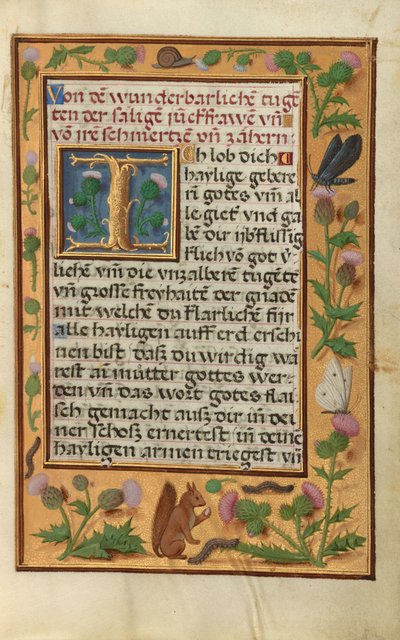 Von dē wunderbarlichē tugē
ten der säligē jūckfrawē vn̄
vō jrē schmertzē vn̄ zähern.
Ich lob dich
haylige gebere
rī gotes vm̄ al
le giet vnd ga
be dir vberflüssig
klich vō got v̈
lichē vm̄ die vnzalberē tugētē
vn̄ grosse freyhaitē der gnadē
mit welchē du klarlichē für
alle hayligen auff erd erschi
nen bist, dasz du wirdig wä
rest ain mutter gottes wer
den vm̄ das wort gotes flai
sch gemacht ausz dir in dei
ner schosz ernertest in deinē
hayligen armen triegest vn̄